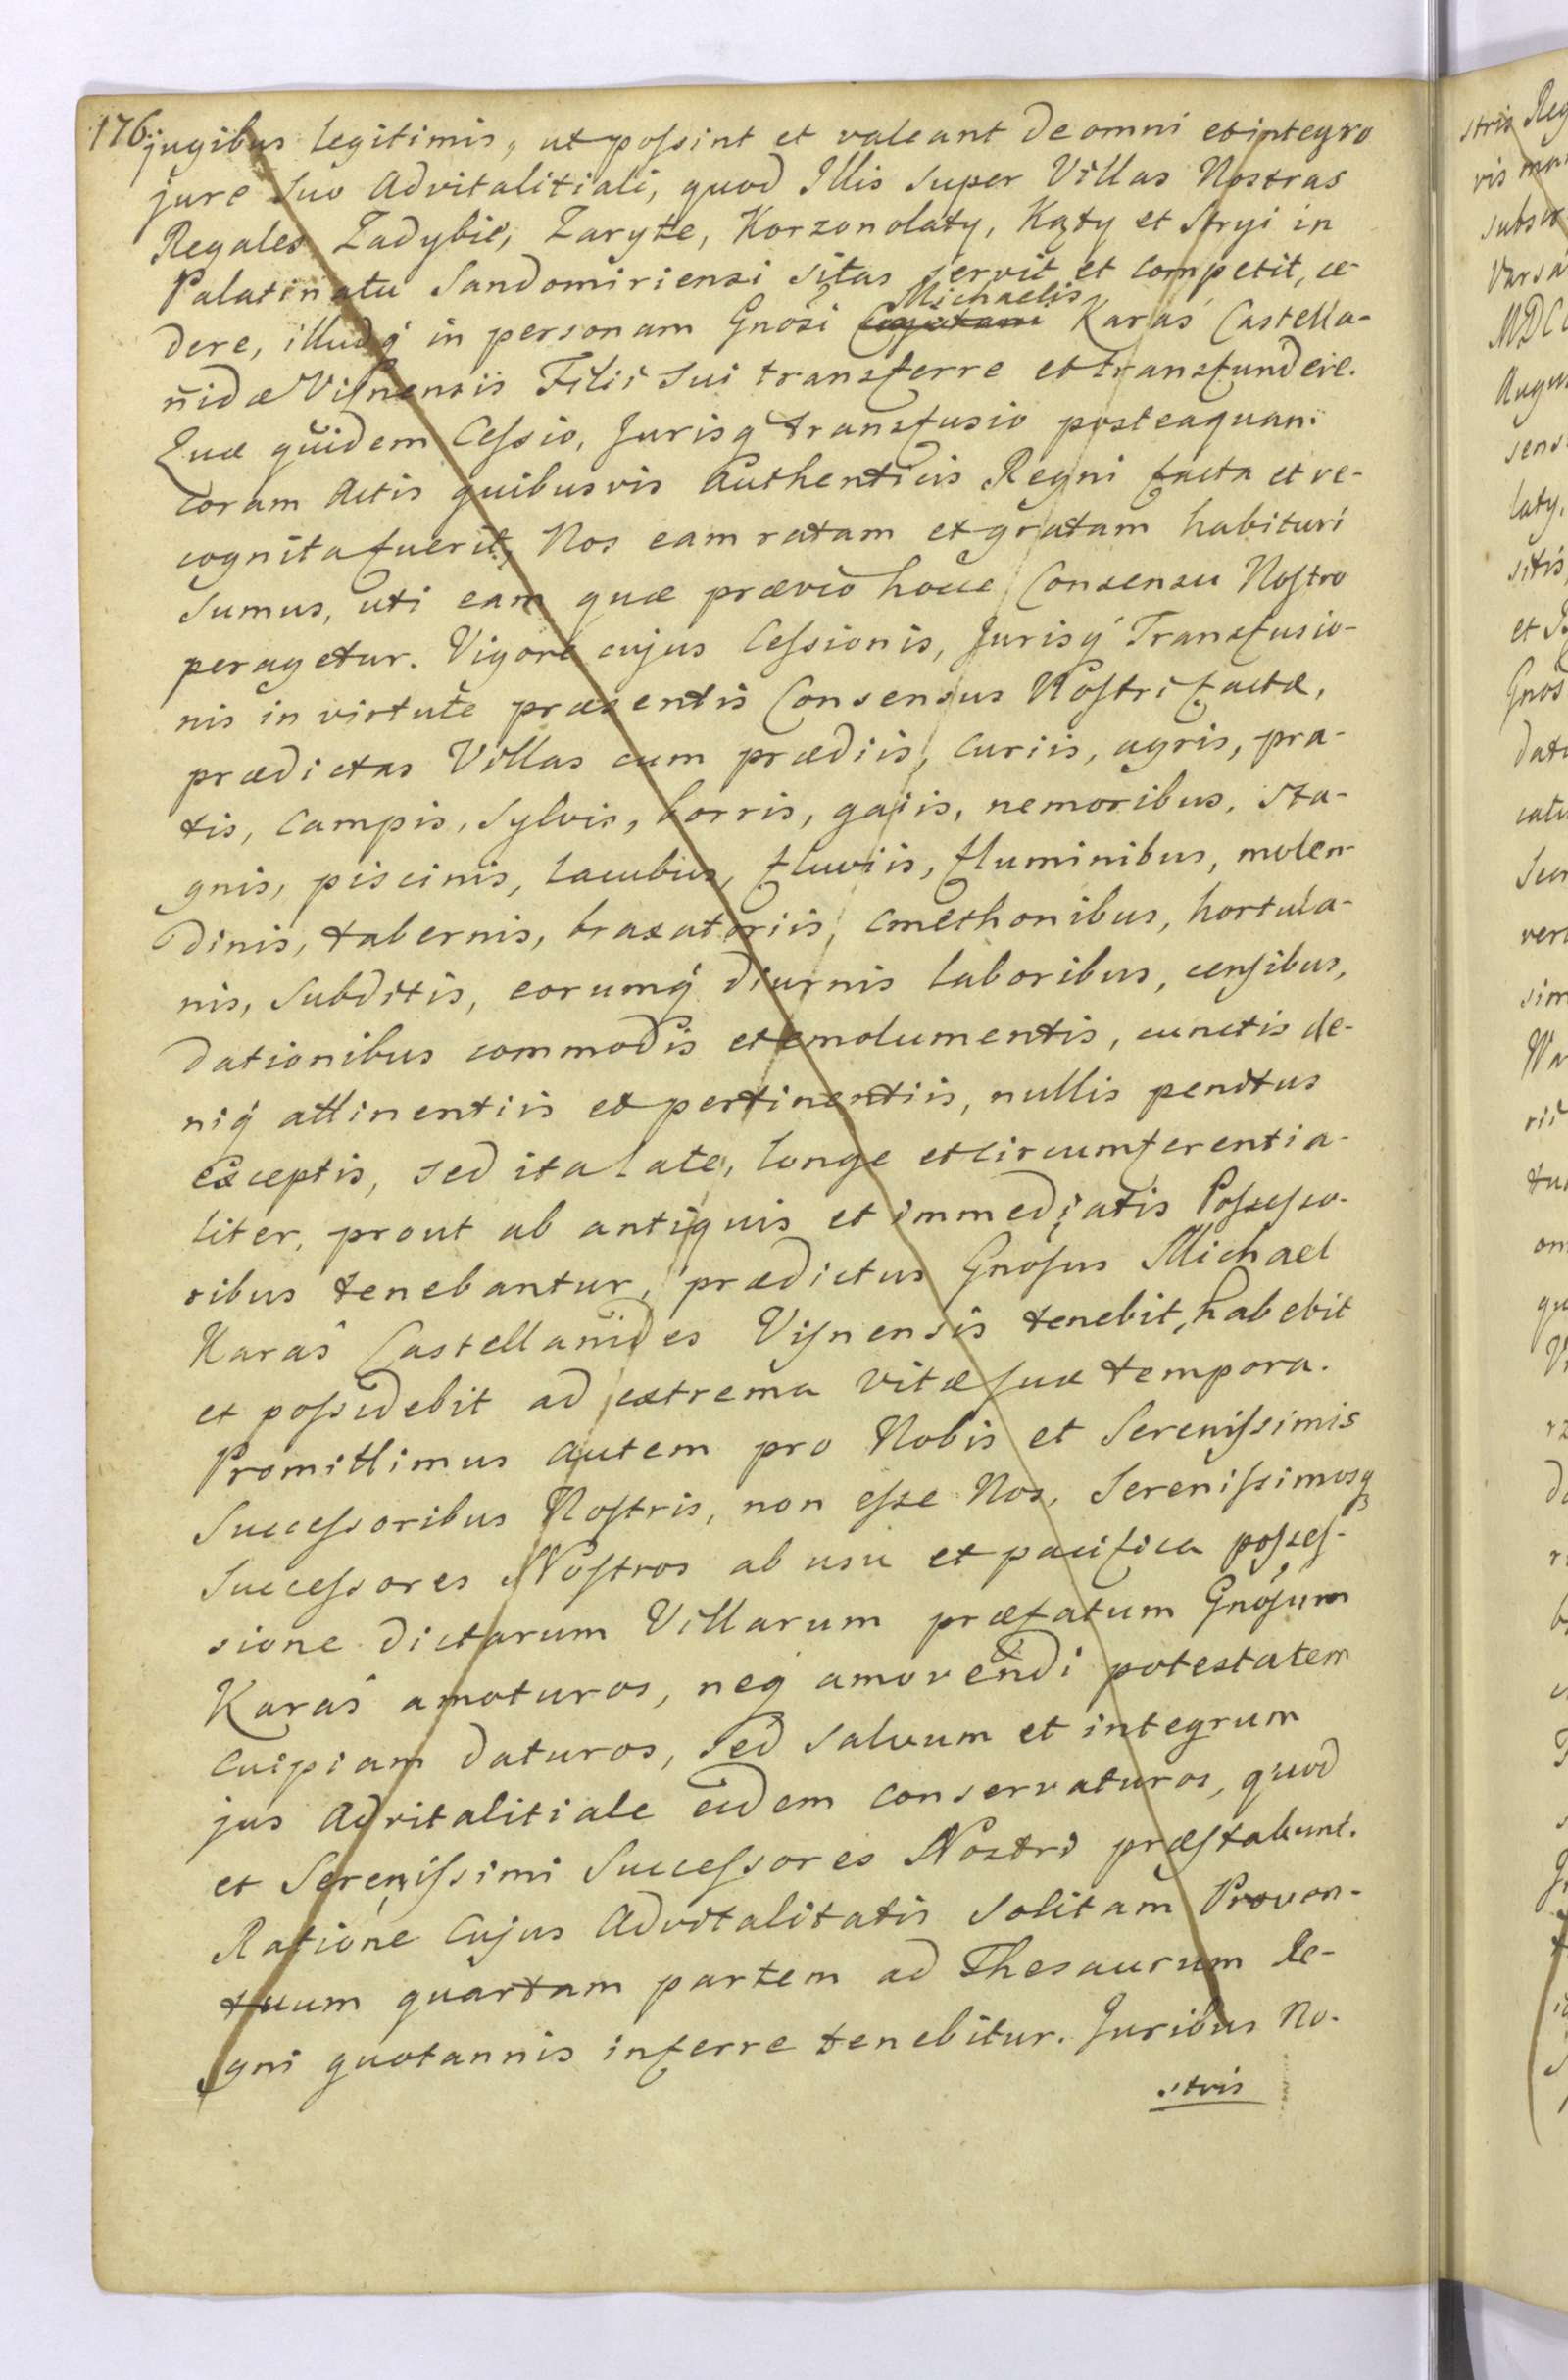 176 jugibus legitimis, ut possint et valeant de omni et integro
jure suo Advitalitiali, quod Illis super Villas Nostras
Regales Zadybie, Zaryte, Korzonolaty, Kąty et Stryi in
Palatinatu Sandomiriensi sitas servit et competit, ce-
Michaelis
dere, illudq́ in personam Gnosi Karaś Castella-
nidæ Visnensiis Filii sui transferre et transfundere.
Quæ quidem Cessio, Jurisq́ transfusio posteaquam
coram Actis quibusvis Authenticis Regni facta et re-
cognita fuerit, Nos eam ratam et gratam habituri
sumus, uti eam quæ prævio hocce Consensu Nostro
peragetur. Vigore cujus Cessionis, Jurisq́ Transfusio-
nis in virtute præsentis Consensus Nostri factæ,
prædictas Villas cum prædiis, curiis, agris, pra-
tis, campis, sylvis, borris, gajis, nemoribus, sta-
gnis, piscinis, lacubus, fluviis, fluminibus, molen-
dinis, tabernis, braxatoriis, cmethonibus, hortula-
nis, subditis, eorumq́ diurnis laboribus, censibus,
dationibus commodis et emolumentis, cunctis de-
niq́ attinentiis et pertinentiis, nullis penitus
exceptis, sed ita late, longe et circumferentia-
liter, prout ab antiquis et immediatis Possesso-
ribus tenebantur, prædictus Gnosus Michael
Karaś Castellanides Visnensis tenebit, habebit
et possidebit ad extrema vitæ suæ tempora.
Promittimus autem pro Nobis et Serenissimis
Successoribus Nostris, non esse Nos, Serenissimosq́
Successores Nostros ab usu et pacifica posses-
sione dictarum Villarum præfatum Gnosum
Karaś amoturos, neq́ amovendi potestatem
cuipiam daturos, sed salvum et integrum
jus Advitalitiale eidem conservaturos, quod
et Serenissimi Successores Nostri præstabunt.
Ratione cujus Advitalitatis solitam Proven-
tuum quartam partem ad Thesaurum Re-
gni quotannis inferre tenebitur. Juribus No-
stris